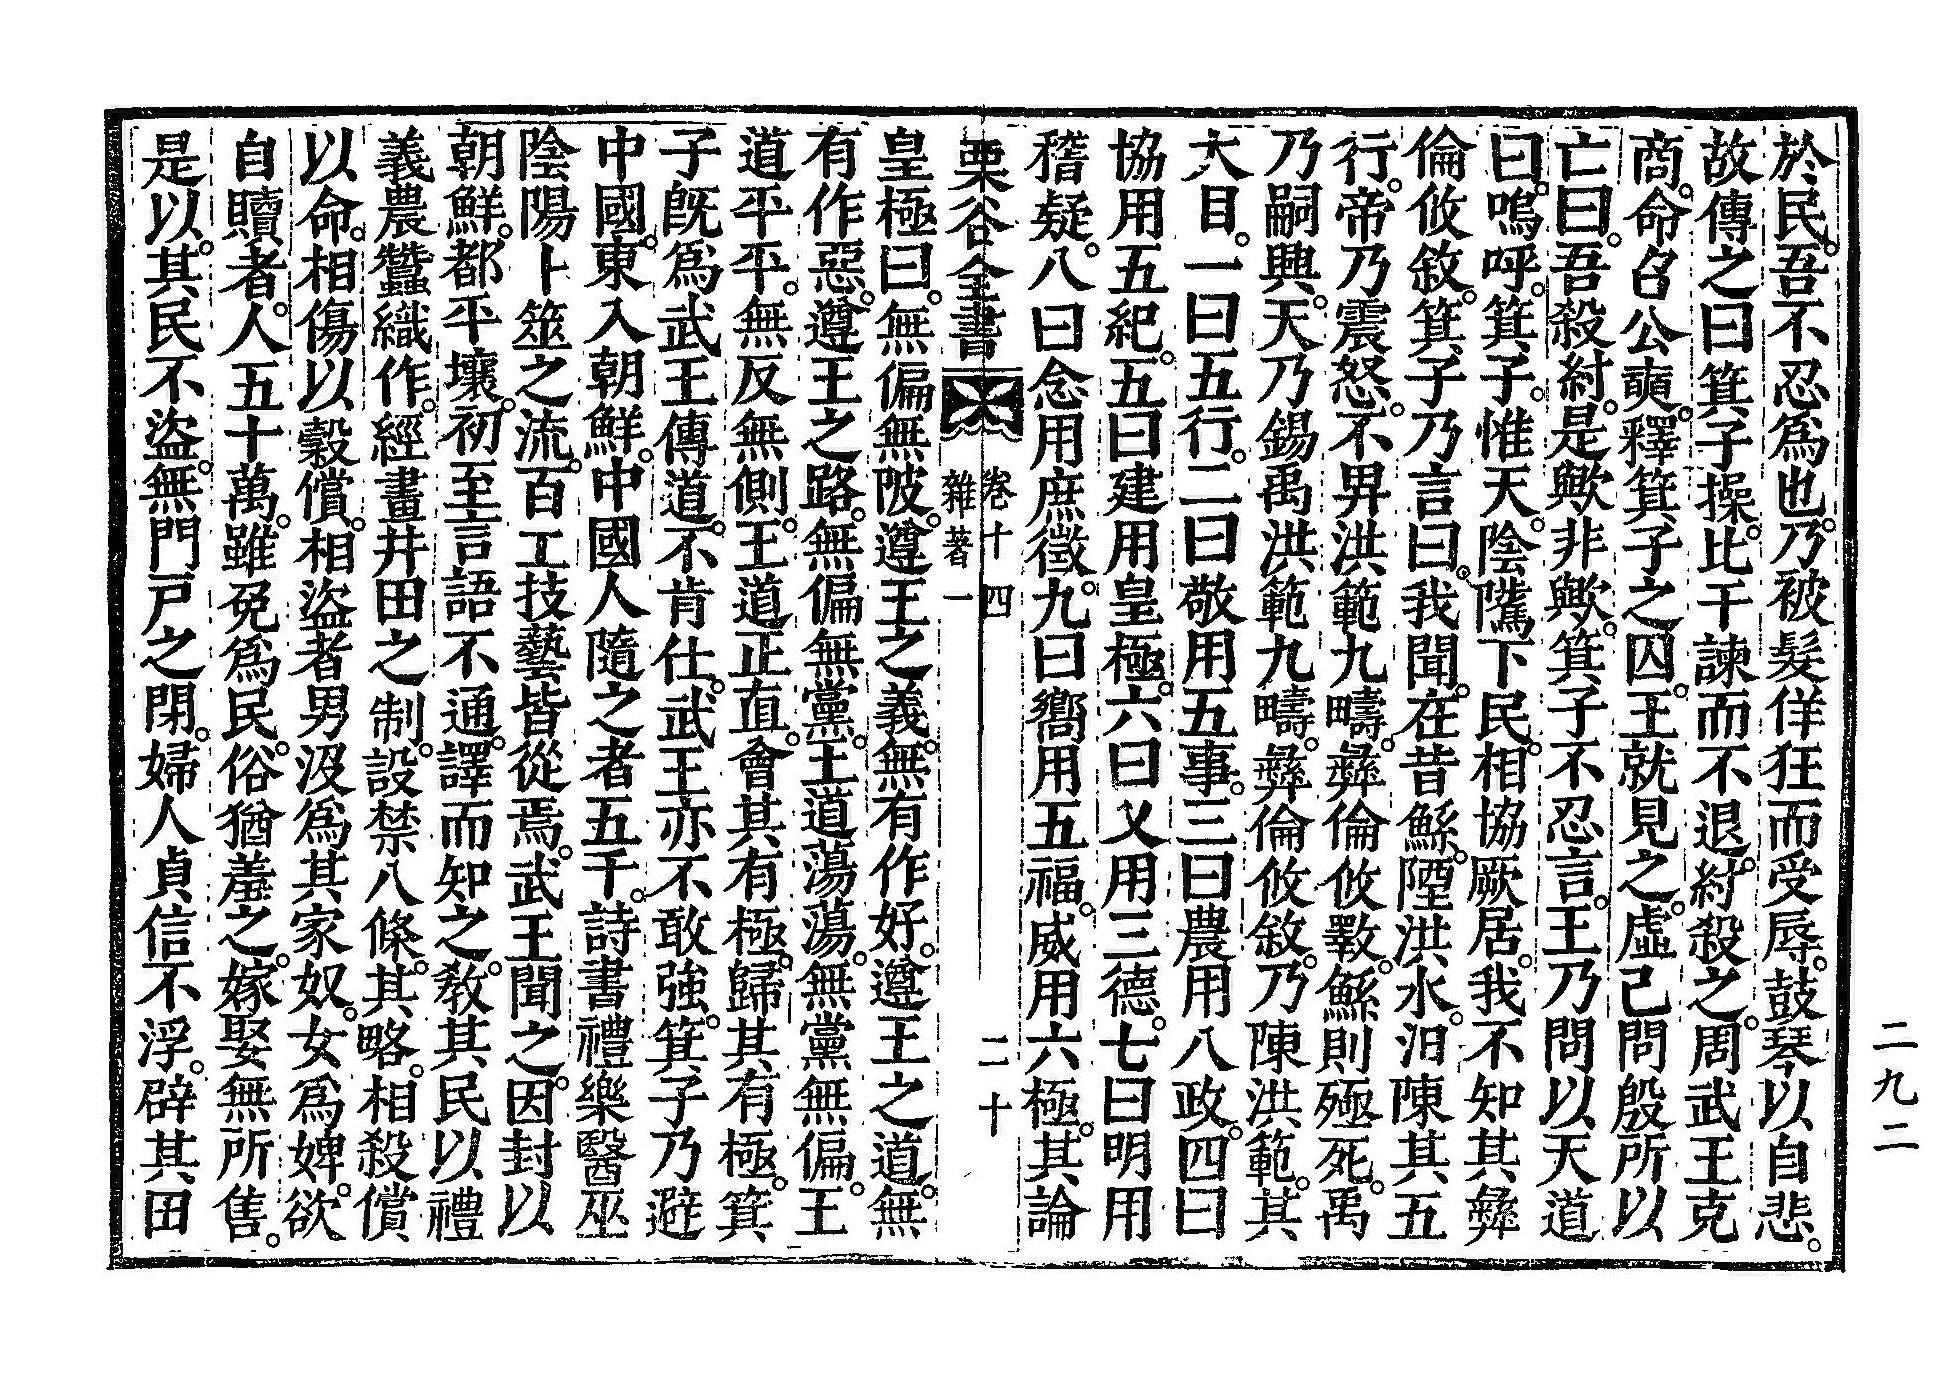 於民。吾不忍爲也。乃被髮佯狂而受辱。鼓琴以自悲。
故傳之曰箕子操。比干諫而不退。紂殺之。周武王克
商。命召公奭。釋箕子之囚。王就見之。虛己問殷所以
亡曰。吾殺紂。是歟非歟。箕子不忍言。王乃問以天道
曰。嗚呼。箕子。惟天。陰隲下民。相協厥居。我不知其彝
倫攸敘。箕子乃言曰。我聞。在昔鯀。陻洪水。汨陳其五
行。帝乃震怒。不畀洪範九疇。彝倫攸斁。鯀則殛死。禹
乃嗣興。天乃錫禹洪範九疇。彝倫攸敘。乃陳洪範。其
大目。一曰五行。二曰敬用五事。三曰農用八政。四曰
協用五紀。五曰建用皇極。六曰乂用三德。七曰明用
稽疑。八曰念用庶徵。九曰嚮用五福。威用六極。其論
栗谷全書 卷十四 雜著一 二十
皇極曰。無偏無陂。遵王之義。無有作好。遵王之道。無
有作惡。遵王之路。無偏無黨。王道蕩蕩。無黨無偏。王
道平平。無反無側。王道正直。會其有極。歸其有極。箕
子旣爲武王傳道。不肯仕。武王亦不敢強。箕子乃避
中國。東入朝鮮。中國人隨之者五千。詩書禮樂醫巫
陰陽卜筮之流。百工技藝皆從焉。武王聞之。因封以
朝鮮。都平壤。初至言語不通。譯而知之。敎其民以禮
義農蠶織作。經畫井田之制。設禁八條。其略。相殺償
以命。相傷以穀償。相盜者男沒爲其家奴。女爲婢。欲
自贖者。人五十萬。雖免爲民。俗猶羞之。嫁娶無所售。
是以。其民不盜。無門戶之閉。婦人貞信不浮。辟其田
二九二